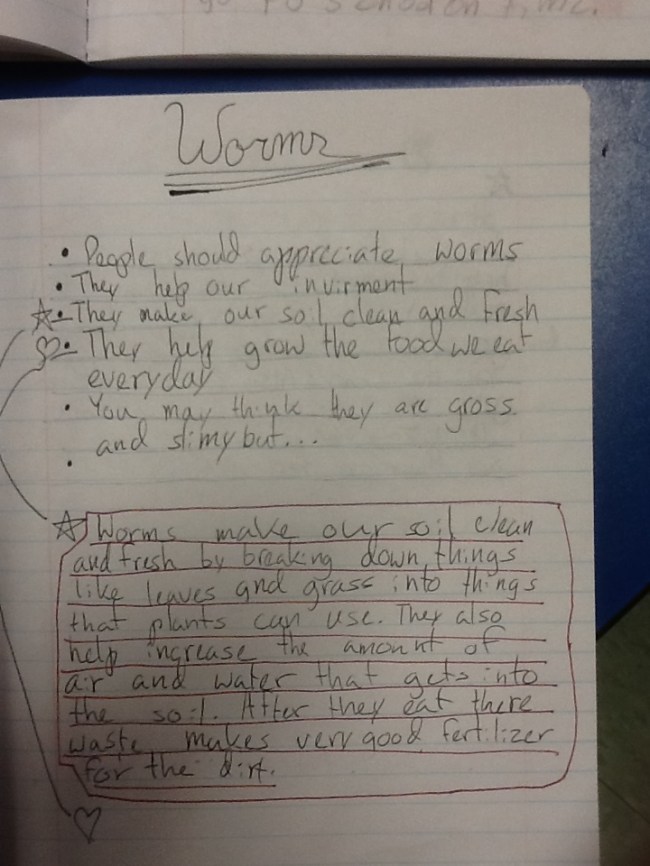 go to school on time.
Worms
• People should appreciate worms
• They help our invirment
☆• They make our soil clean and fresh
♡• They help grow the food we eat
everyday
• You may think they are gross
and slimy but...
•
☆ Worms make our soil clean
and fresh by breaking down things
like leaves and grass into things
that plants can use. They also
help increase the amount of
air and water that gets into
the soil. After they eat there
waste makes very good fertilizer
for the dirt.
♡